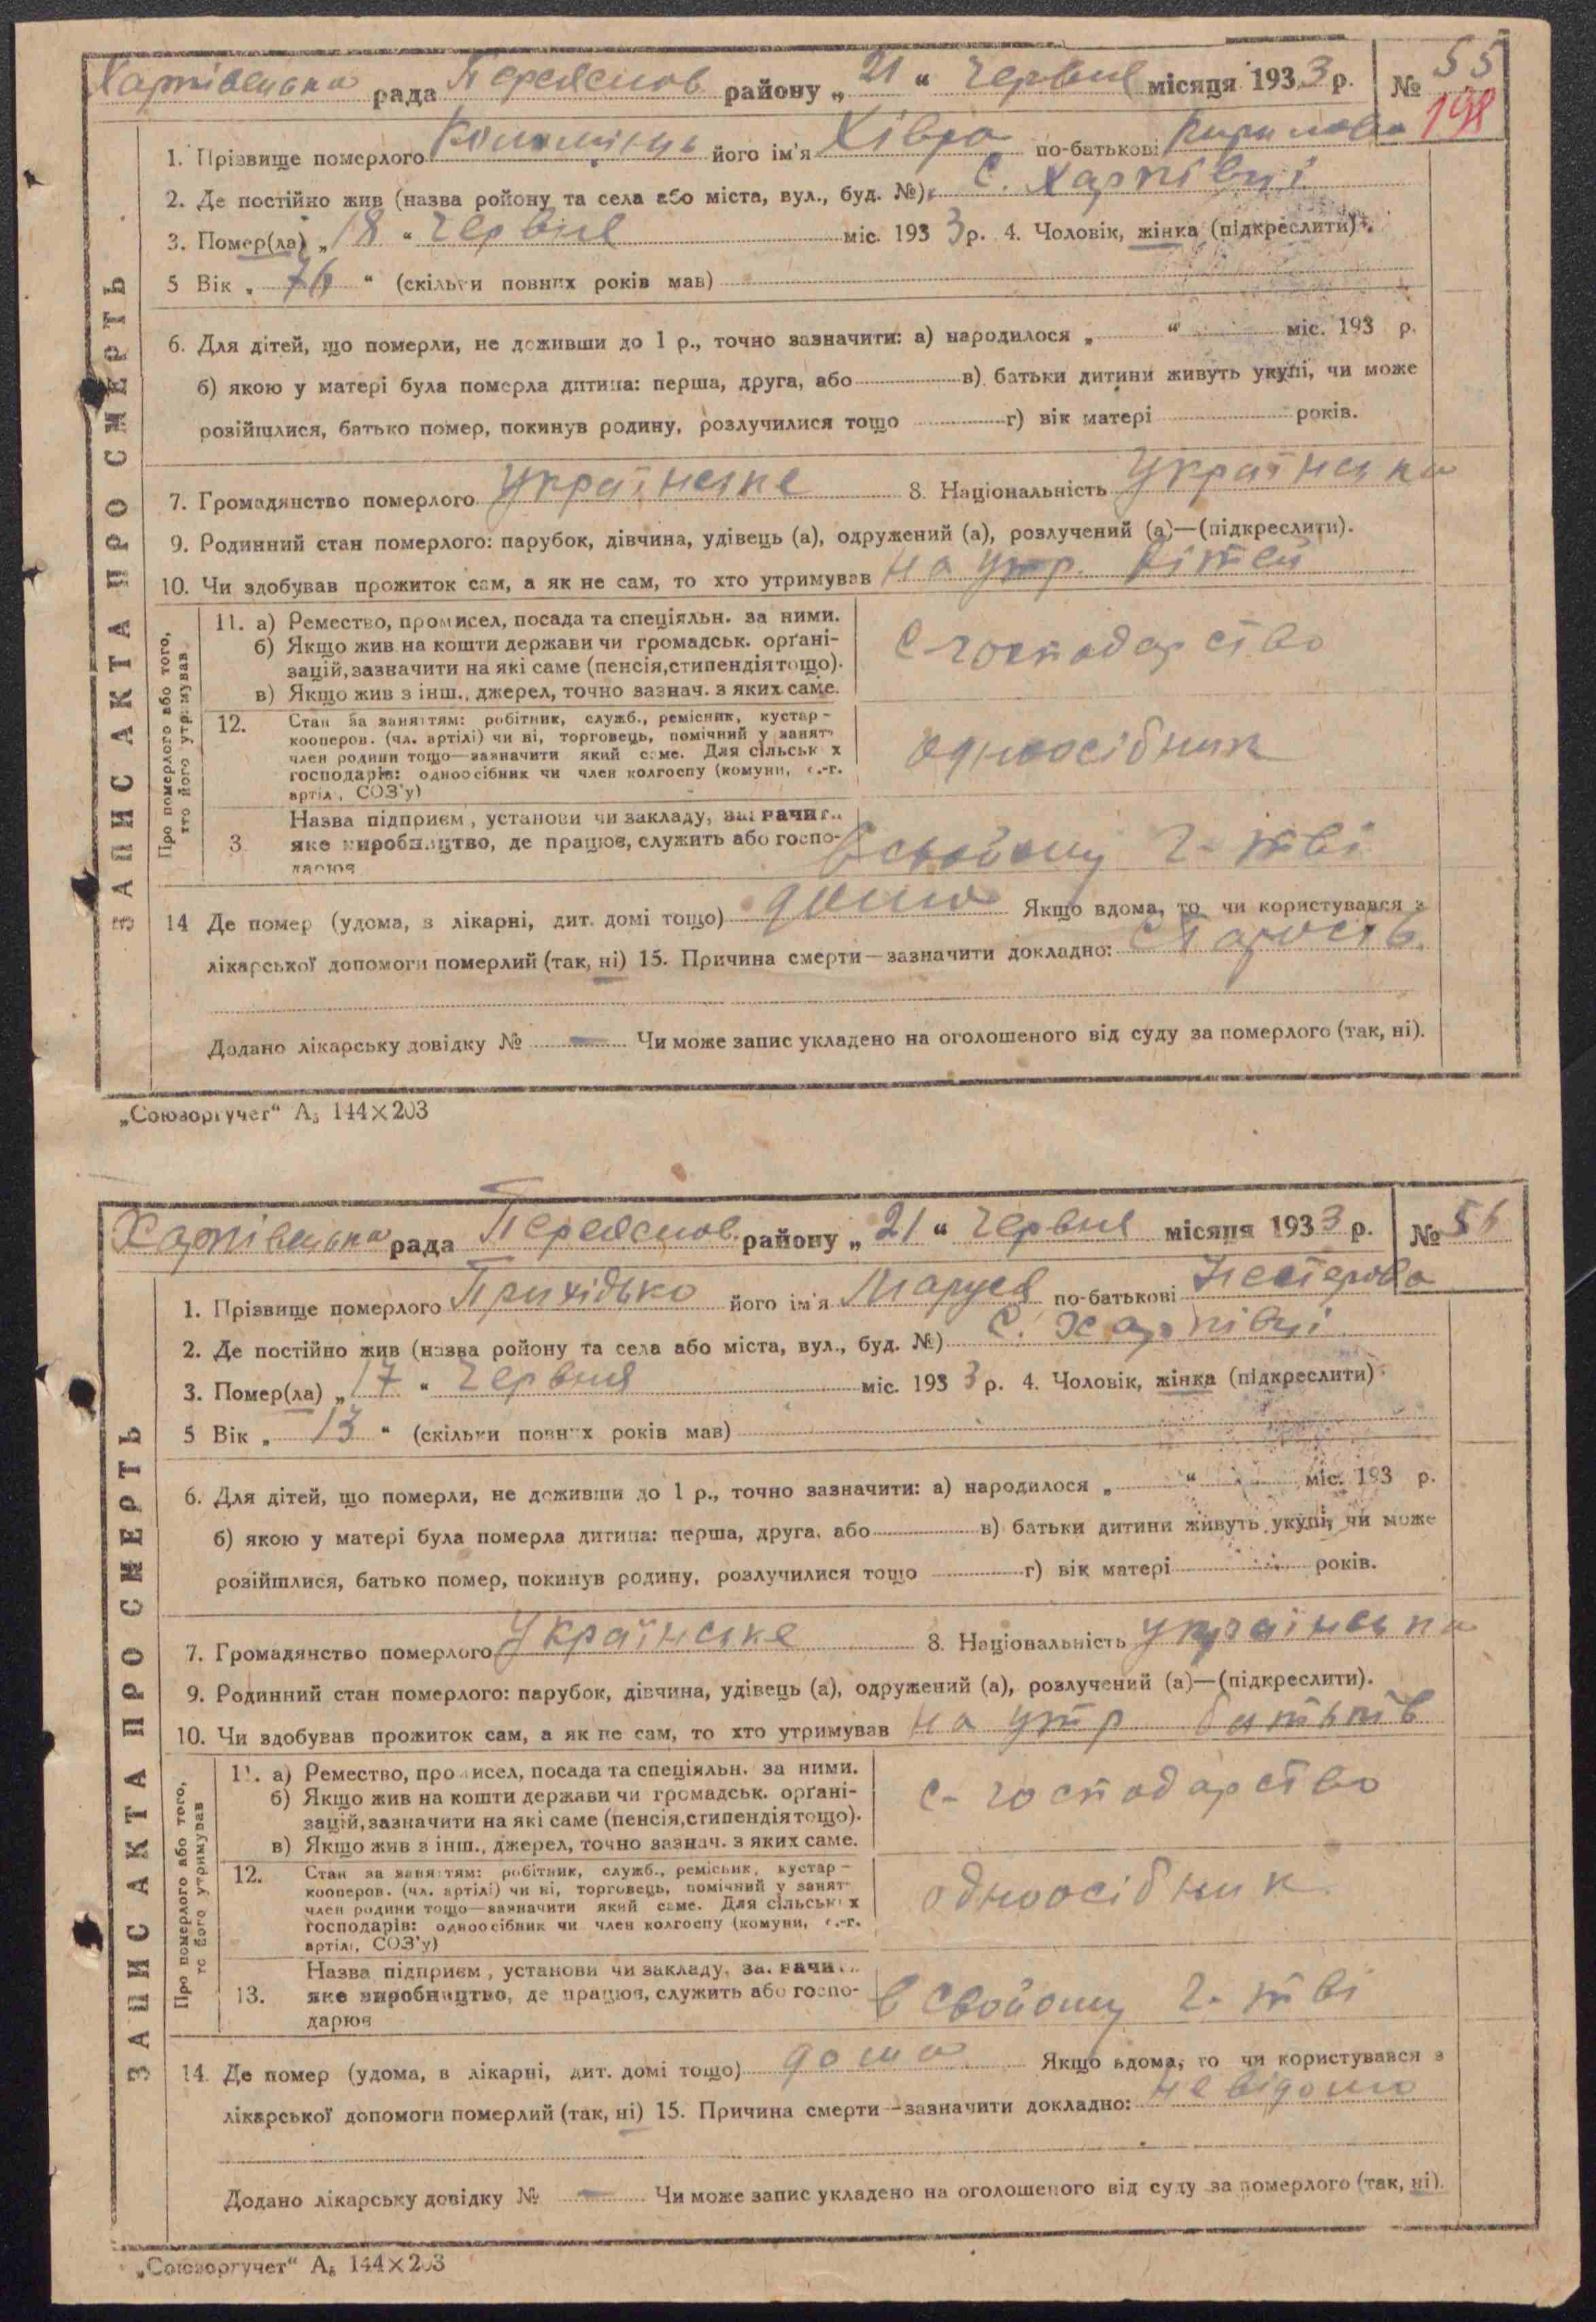 Харківецька рада Переяслов району „21“ червня місяця 1933 р. № 55
198
1. Прізвище померлого Коломієць його ім'я Хівря по-батькові Кирилова
2. Де постійно жив (назва ройону та села або міста, вул., буд. №) с. Харківці
3. Помер(ла) „18“ червня міс. 193 3 р. 4. Чоловік, жінка (підкреслити).
5 Вік „76“ (скільки повних років мав)
6. Для дітей, що померли, не доживши до 1 р., точно зазначити: а) народилося „ “ міс. 193 р.
б) якою у матері була померла дитина: перша, друга, або в) батьки дитини живуть укупі, чи може
розійшлися, батько помер, покинув родину, розлучилися тощо г) вік матері років.
7. Громадянство померлого Українське 8. Національність Українська
9. Родинний стан померлого: парубок, дівчина, удівець (а), одружений (а), розлучений (а)—(підкреслити).
10. Чи здобував прожиток сам, а як не сам, то хто утримував на утр. дітей
ЗАПИС АКТА ПРО СМЕРТЬ
Про померлого або того, хто його утримував
11. а) Ремество, промисел, посада та спеціяльн. за ними.
б) Якщо жив на кошти держави чи громадськ. орґані-
зацій, зазначити на які саме (пенсія, стипендія тощо).
в) Якщо жив з інш., джерел, точно зазнач. з яких саме.
с-господарство
12. Стан за заняттям: робітник, служб., ремісник, кустар -
кооперов. (чл. артілі) чи ні, торговець, помічний у занят-
член родини тощо—зазначити який саме. Для сільськ х
господарів: одноосібник чи член колгоспу (комуни, с.-г.
артіл, СОЗ'у)
одноосібник
3 Назва підприєм, установи чи закладу, зазначит..
яке виробництво, де працює, служить або госпо-
дарює
В свойому г-тві
14 Де помер (удома, в лікарні, дит. домі тощо) дома Якщо вдома, то чи користувався з
лікарської допомоги померлий (так, ні) 15. Причина смерти—зазначити докладно: Старость
Додано лікарську довідку № — Чи може запис укладено на оголошеного від суду за померлого (так, ні).
„Союзоргучет“ А₅ 144×203
Харківецька рада Переяслов. району „21“ червня місяця 1933 р. № 56
1. Прізвище померлого Прихідько його ім'я Маруся по-батькові Нестерова
2. Де постійно жив (назва ройону та села або міста, вул., буд. №) с. Харківці
3. Помер(ла) „17“ червня міс. 193 3 р. 4. Чоловік, жінка (підкреслити)
5 Вік „13“ (скільки повних років мав)
6. Для дітей, що померли, не доживши до 1 р., точно зазначити: а) народилося „ “ міс. 193 р.
б) якою у матері була померла дитина: перша, друга, або в) батьки дитини живуть укупі, чи може
розійшлися, батько помер, покинув родину, розлучилися тощо г) вік матері років.
7. Громадянство померлого Українське 8. Національність українська
9. Родинний стан померлого: парубок, дівчина, удівець (а), одружений (а), розлучений (а)—(підкреслити).
10. Чи здобував прожиток сам, а як не сам, то хто утримував на утр батьків
ЗАПИС АКТА ПРО СМЕРТЬ
Про померлого або того, то його утримував
11. а) Ремество, промисел, посада та спеціяльн. за ними.
б) Якщо жив на кошти держави чи громадськ. орґані-
зацій, зазначити на які саме (пенсія, стипендія тощо).
в) Якщо жив з інш., джерел, точно зазнач. з яких саме.
с-господарство
12. Стан за заняттям: робітник, служб., ремісник, кустар -
кооперов. (чл. артілі) чи ні, торговець, помічний у занят-
член родини тощо—зазначити який саме. Для сільськ х
господарів: одноосібник чи член колгоспу (комуни, с.-г.
артілі, СОЗ'у)
одноосібник
13. Назва підприєм, установи чи закладу, зазначи...
яке виробництво, де працює, служить або госпо-
дарює
В свойому г-тві
14. Де помер (удома, в лікарні, дит. домі тощо) дома Якщо вдома, то чи користувався з
лікарської допомоги померлий (так, ні) 15. Причина смерти—зазначити докладно: невідомо
Додано лікарську довідку № — Чи може запис укладено на оголошеного від суду за померлого (так, ні).
„Союзоргучет“ А₅ 144×203